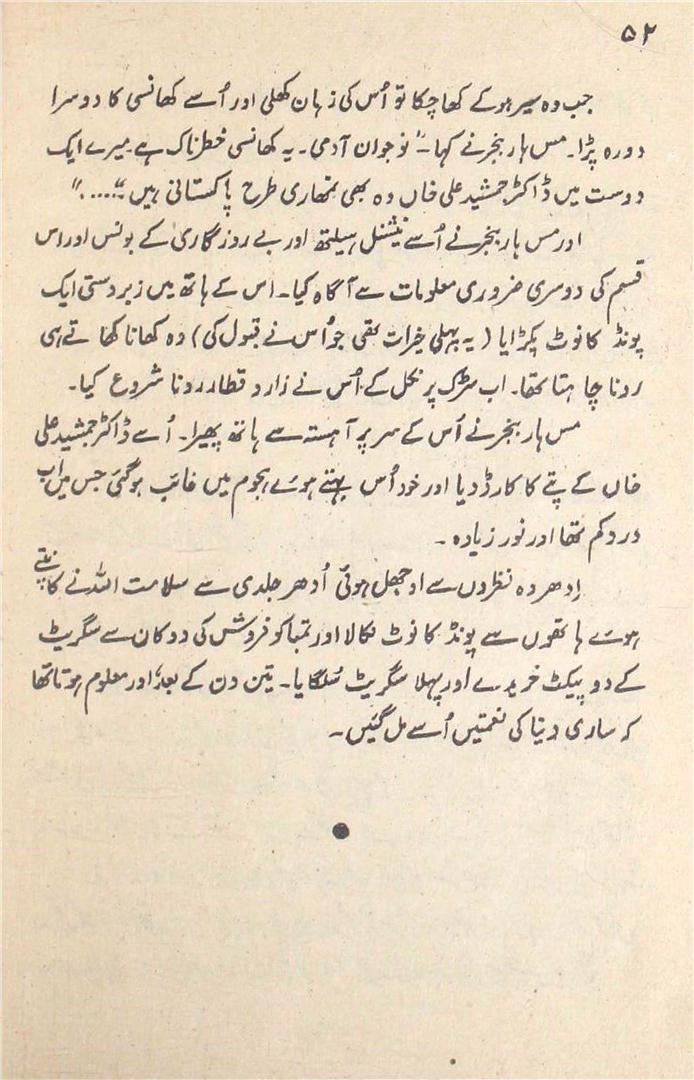 ۵۲
جب وہ سیر ہو کے کھا چکا تو اُس کی زبان کھلی اور اُسے کھانسی کا دوسرا
دورہ پڑا۔ مس ہار بنجر نے کہا۔ "نوجوان آدمی۔ یہ کھانسی خطرناک ہے میرے ایک
دوست ہیں ڈاکٹر جمشید علی خاں وہ بھی تمھاری طرح پاکستانی ہیں ۔ ...."
اور مس ہار بنجر نے اُسے نیشنل ہیلتھ اور بے روزگاری کے بونس اور اس
قسم کی دوسری ضروری معلومات سے آگاہ کیا۔ اس کے ہاتھ میں زبردستی ایک
پونڈ کا نوٹ پکڑایا (یہ پہلی خیرات تھی جو اُس نے قبول کی) وہ کھانا کھاتے ہی
رونا چاہتا تھا۔ اب سڑک پر نکل کے اُس نے زار و قطار رونا شروع کیا۔
مس ہار بنجر نے اُس کے سر پر آہستہ سے ہاتھ پھیرا۔ اُسے ڈاکٹر جمشید علی
خاں کے پتے کا کارڈ دیا اور خود اُس بہتے ہوئے ہجوم میں غائب ہو گئی جس میں اب
درد کم تھا اور نور زیادہ ۔
اِدھر وہ نظروں سے اوجھل ہوئی اُدھر جلدی سے سلامت اللہ نے کانپتے
ہوئے ہاتھوں سے پونڈ کا نوٹ نکالا اور تمباکو فروش کی دوکان سے سگریٹ
کے دو پیکٹ خریدے اور پہلا سگریٹ سُلگایا۔ تین دن کے بعد، اور معلوم ہوتا تھا
کہ ساری دنیا کی نعمتیں اُسے مل گئیں۔